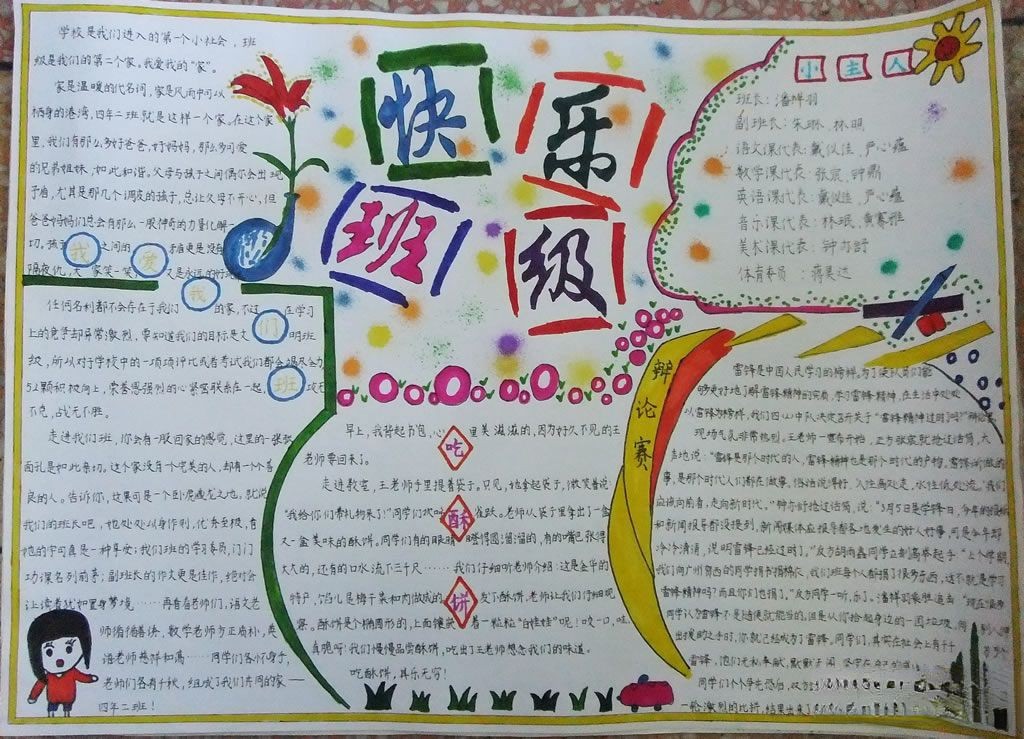 快乐
班级
学校是我们进入的第一个小社会，班
级是我们的第二个家。我爱我的“家”。
家是温暖的代名词，家是风雨中可以
栖身的港湾，四年二班就是这样一个家。在这个家
里，我们有那么多好爸爸，好妈妈，那么多可爱
的兄弟姐妹，如此和谐。父母与孩子之间偶尔会出现
矛盾，尤其是那几个调皮的孩子，总让父母不开心，但
爸爸妈妈们总会有那么一股神奇的力量化解一
切。孩子之间的矛盾更是没有
隔夜仇，大家笑一笑，又是永远的好
我爱我们班
任何名利都不会存在于我们的家，不过在学习
上的竞争却异常激烈，要知道我们的目标是文明班
级，所以对于学校中的一项项评比或者考试我们都会竭尽全力
52颗积极向上，荣誉感强烈的心紧密联系在一起，攻无
不克，战无不胜。
走进我们班，你会有一股回家的感觉，这里的一张张
面孔是如此亲切。这个家没有十全十美的人，却有一个个善
良的人。告诉你，这里可是一个卧虎藏龙之地。就说
我们的班长吧，她处处以身作则，优秀全校，看
她的字可真是一种享受；我们班的学习委员，门门
功课名列前茅；副班长的作文更是佳作，绝对会
让读者犹如置身梦境……再看看老师们，语文老
师循循善诱，数学老师方正扁朴，英
语老师慈祥和蔼……同学们各怀身手，
老师们各有千秋，组成了我们共同的家——
四年二班！
小主人
班长：潘祥羽
副班长：朱琳、林明
语文课代表：戴仪佳、严心蕴
数学课代表：张宸、钟鼎
英语课代表：戴仪佳、严心蕴
音乐课代表：林珉、黄赛雅
美术课代表：钟亦舒
体育委员：蒋昊达
吃酥饼
早上，我背起书包，心里美滋滋的，因为好久不见的王
老师要回来了。
走进教室，王老师手里提着袋子。只见，她拿起袋子，微笑着说：
“我给你们带礼物来了！”同学们欢呼雀跃。老师从袋子里拿出了一盒
又一盒美味的酥饼。同学们有的眼睛瞪得圆溜溜的，有的嘴巴张得
大大的，还有的口水流下三千尺……我们仔细听老师介绍：这是金华的
特产，馅儿是梅干菜和肉做成的。发下酥饼，老师让我们仔细观
察。酥饼是个椭圆形的，上面镶嵌着一粒粒“白娃娃”呢！咬一口，哇，
真脆呀！我们慢慢品尝酥饼，吃出了王老师想念我们的味道。
吃酥饼，其乐无穷！
辩论赛
雷锋是中国人民学习的榜样。为了使队员们能
够更好地了解雷锋精神的实质，学习雷锋精神，在生活中处处
以雷锋为榜样，我们四(2)中队决定召开关于“雷锋精神过时了吗”辩论赛。
现场气氛非常热烈。王老师一宣布开始，正方张宸就抢过话筒，大
声地说：“雷锋是那个时代的人，雷锋精神也是那个时代的产物，雷锋所做的
事，是那个时代人们都在做事。俗话说得好，人往高处走，水往低处流，我们
应该向前看，走向新时代。”钟亦舒抢过话筒，说：“3月5日是学锋日，今年的
和新闻报导都没提到，新闻媒体应报导各地发生的好人好事，可是今年却
冷冷清清，说明雷锋已经过时了。”反方胡雨鑫同学立刻高举起手：“上个学期
我们向广州